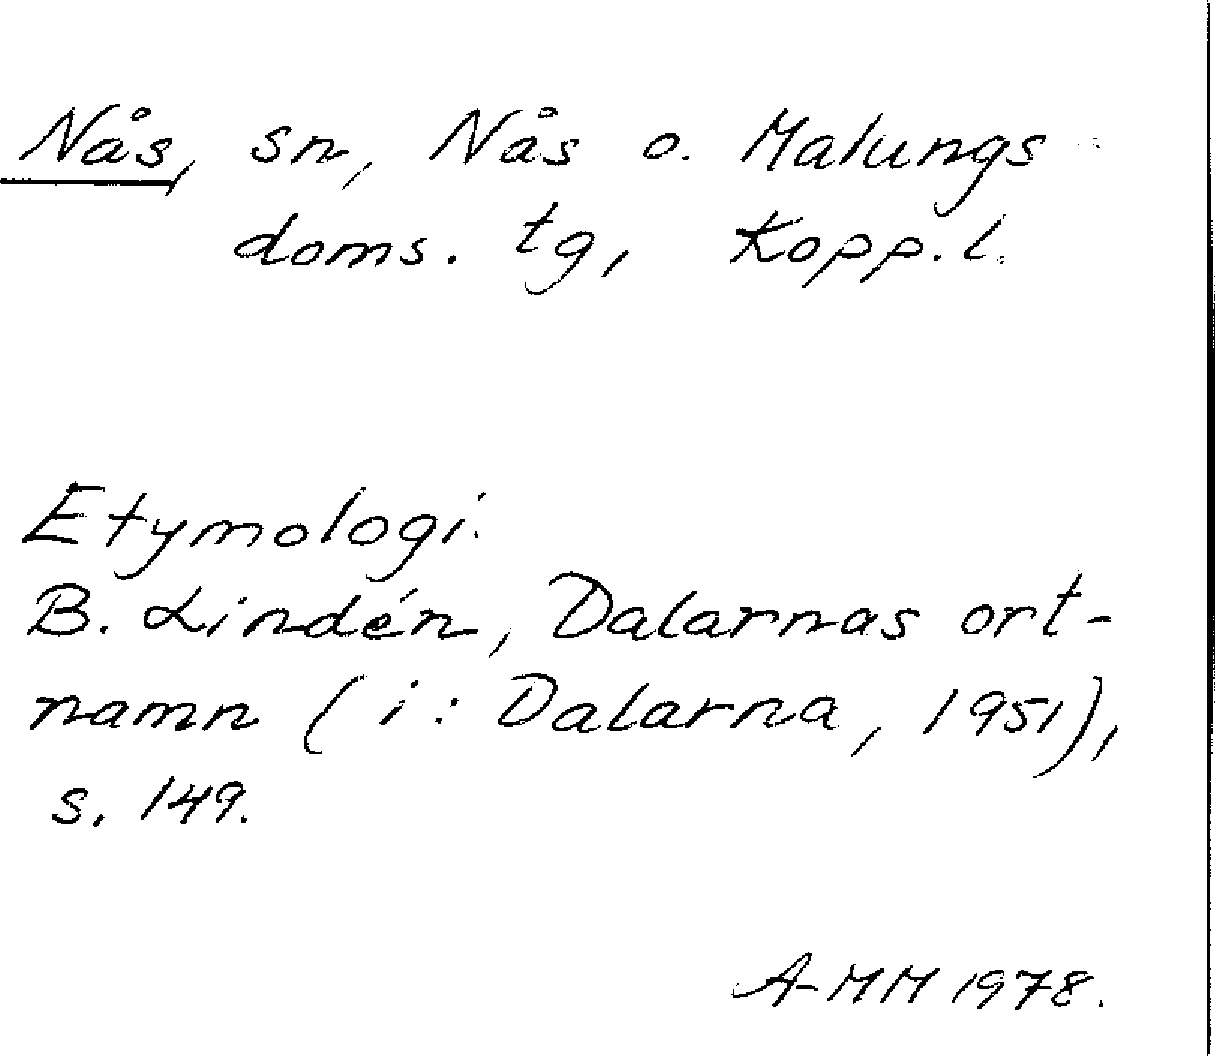 Nås, sn, Nås o. Malungs
doms. tg, Kopp.l.
Etymologi:
B. Lindén, Dalarnas ort-
namn (i: Dalarna, 1951),
s. 149.
A-MM 1978.